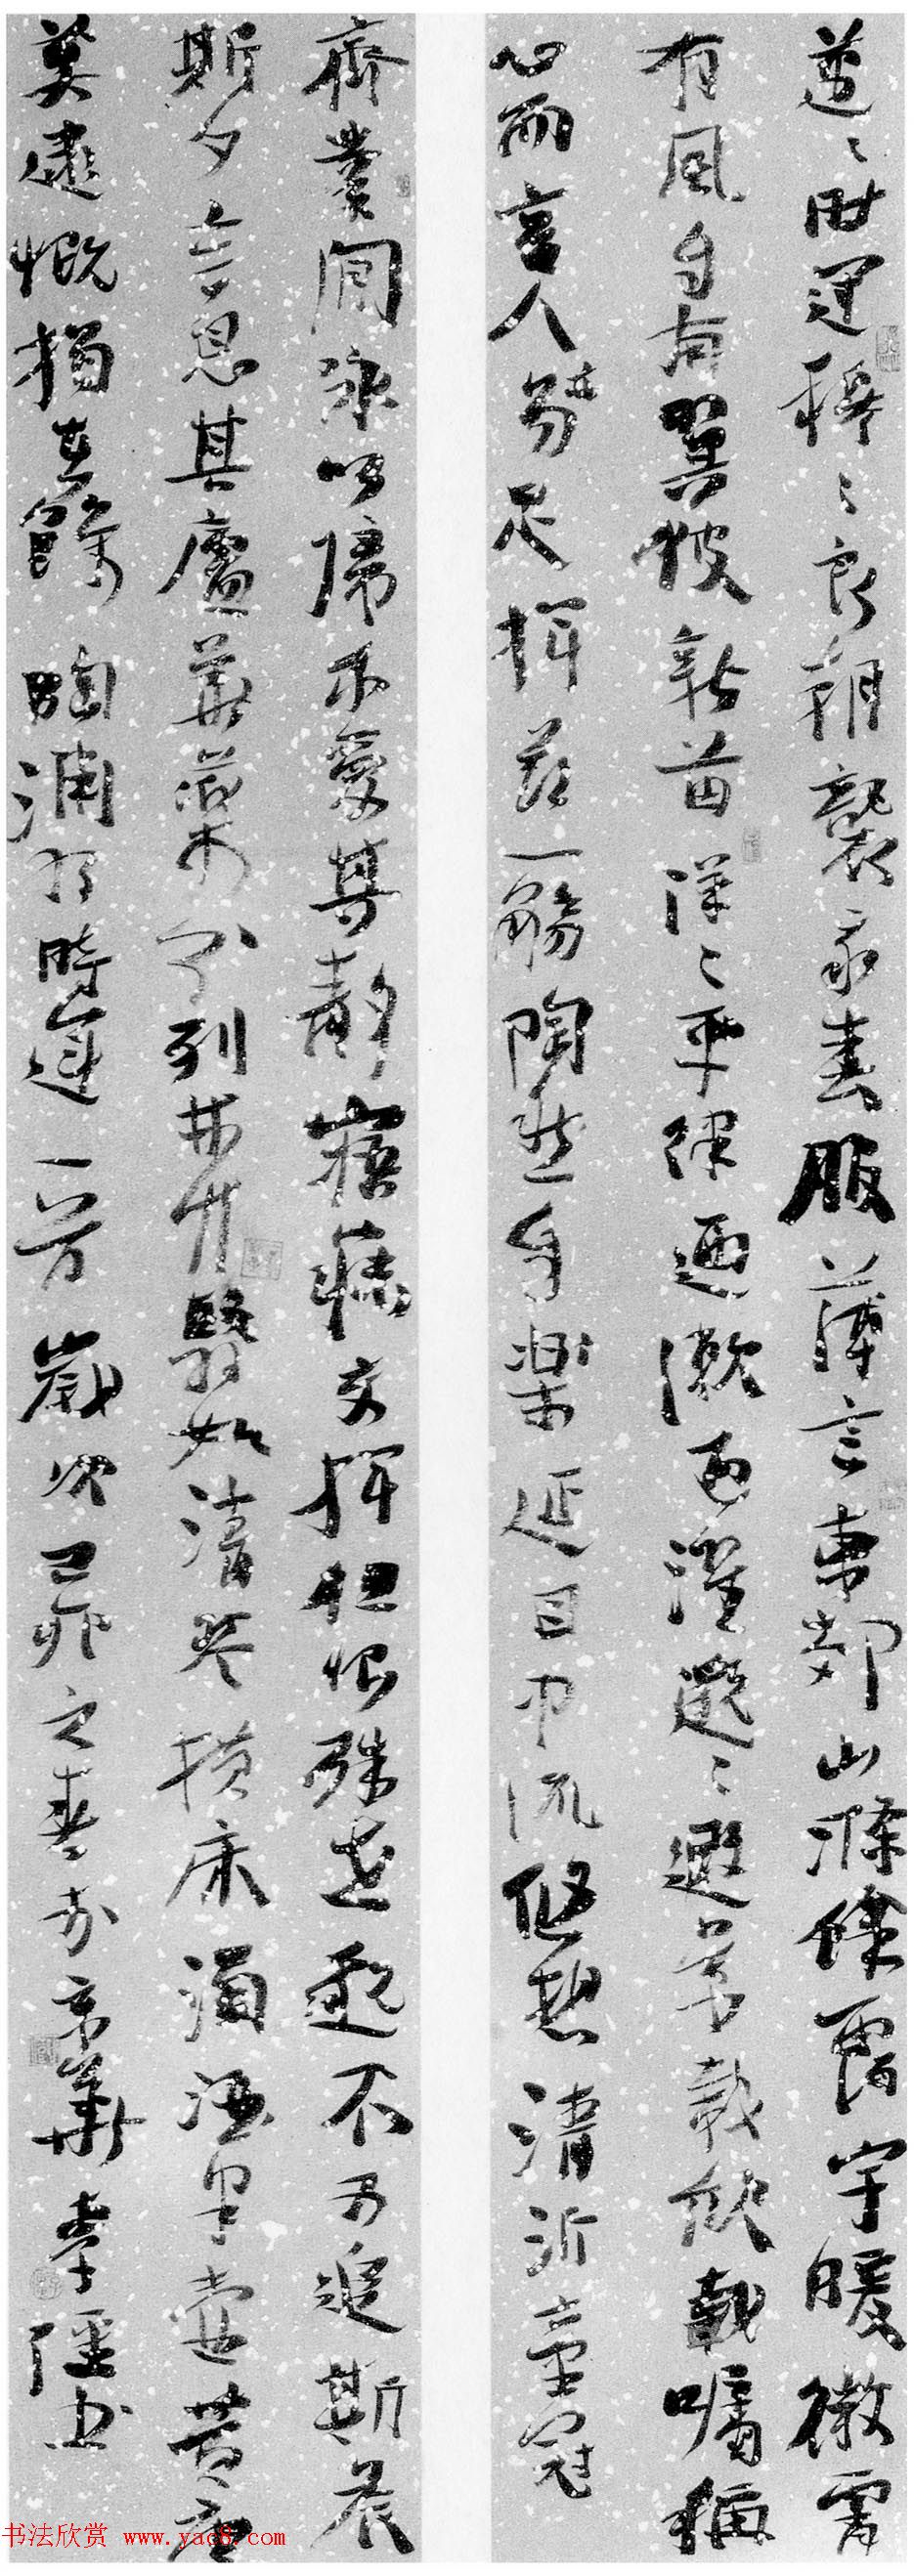 邁〻時運穆〻良朝襲我春服薄言東郊山滌餘靄宇曖微霄
有風自南翼彼新苗洋〻平津迺漱迺濯邈〻遐景載欣載矚稱
心而言人易足揮茲一觴陶然自樂延目中流悠想清沂童冠
齊業閒詠以歸我愛其靜寤寐交揮但恨殊世邈不可追斯晨
斯夕言息其廬華藥分列林竹翳如清琴橫床濁酒半壺黃唐
莫逮慨獨在餘 陶淵明時運一首 歲次己卯之春於京華 李書
书法欣赏 www.yac8.com